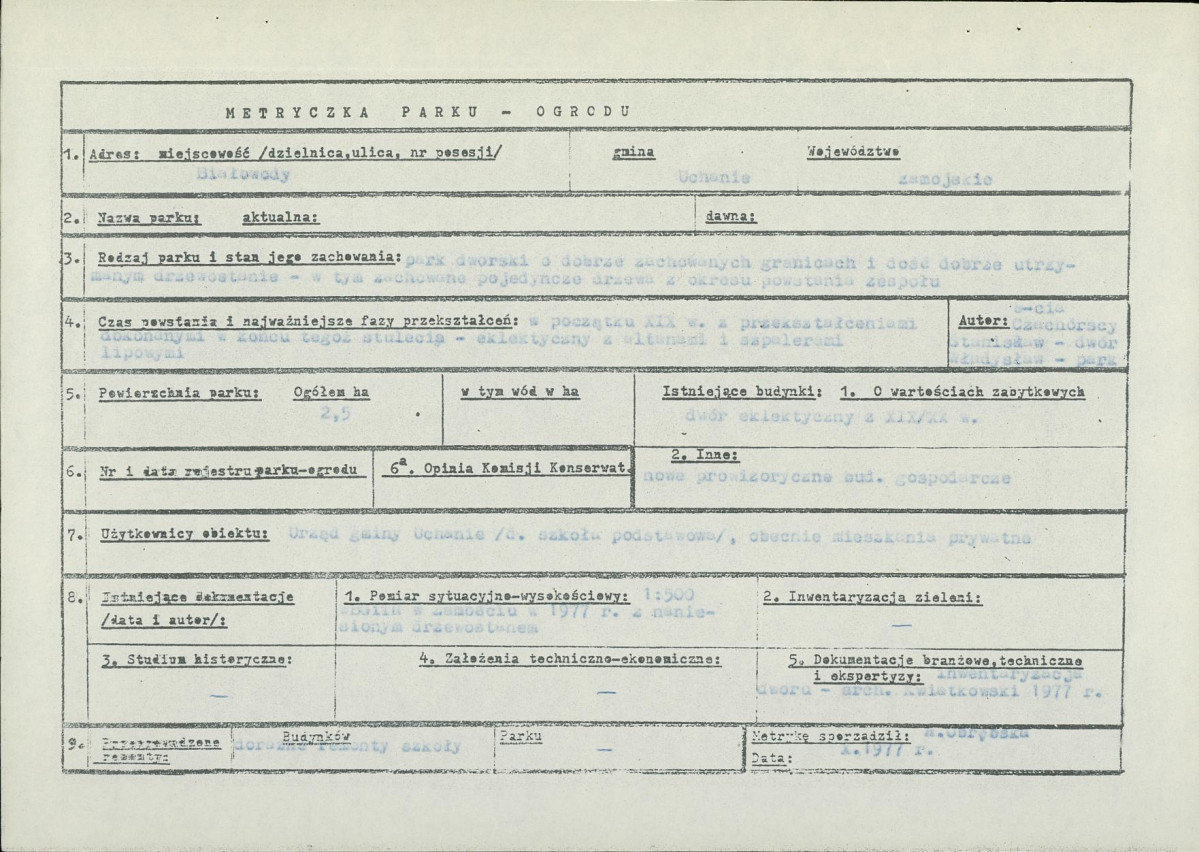 METRYCZKA PARKU - OGRODU
1. Adres: miejscowość /dzielnica,ulica, nr posesji/ gmina Województwo
Białowody Uchanie zamojskie
2. Nazwa parku: aktualna: dawna:
3. Rodzaj parku i stan jego zachowania: park dworski o dobrze zachowanych granicach i dość dobrze utrzy-
manym drzewostanie - w tym zachowane pojedyncze drzewa z okresu powstania zespołu
4. Czas powstania i najważniejsze fazy przekształceń: w początku XIX w. z przekształceniami
dokonanymi w końcu tegoż stulecia - eklektyczny z altanami i szpalerami
lipowymi
Autor: Czachórscy
Stanisław - dwór
Władysław - park
5. Powierzchnia parku: Ogółem ha w tym wód w ha
2,5
Istniejące budynki: 1. O wartościach zabytkowych
dwór eklektyczny z XIX/XX w.
2. Inne:
nowe prowizoryczne bud. gospodarcze
6. Nr i data rejestru parku-ogrodu 6a. Opinia Komisji Konserwat.
7. Użytkownicy obiektu: Urząd gminy Uchanie /d. szkoła podstawowa/, obecnie mieszkania prywatne
8. Istniejące dokumentacje
/data i autor/:
1. Pomiar sytuacyjno-wysokościowy: 1:500
w Zamościu w 1977 r. z nanie-
sionym drzewostanem
2. Inwentaryzacja zieleni:
—
3. Studium historyczne:
—
4. Założenia techniczno-ekonomiczne:
—
5. Dokumentacje branżowe,techniczne
i ekspertyzy: Inwentaryzacja
dworu - arch. Kwiatkowski 1977 r.
9. Przeprowadzone
remonty:
Budynków
doraźne remonty szkoły
Parku
—
Metrykę sporządził:
Data: X.1977 r.